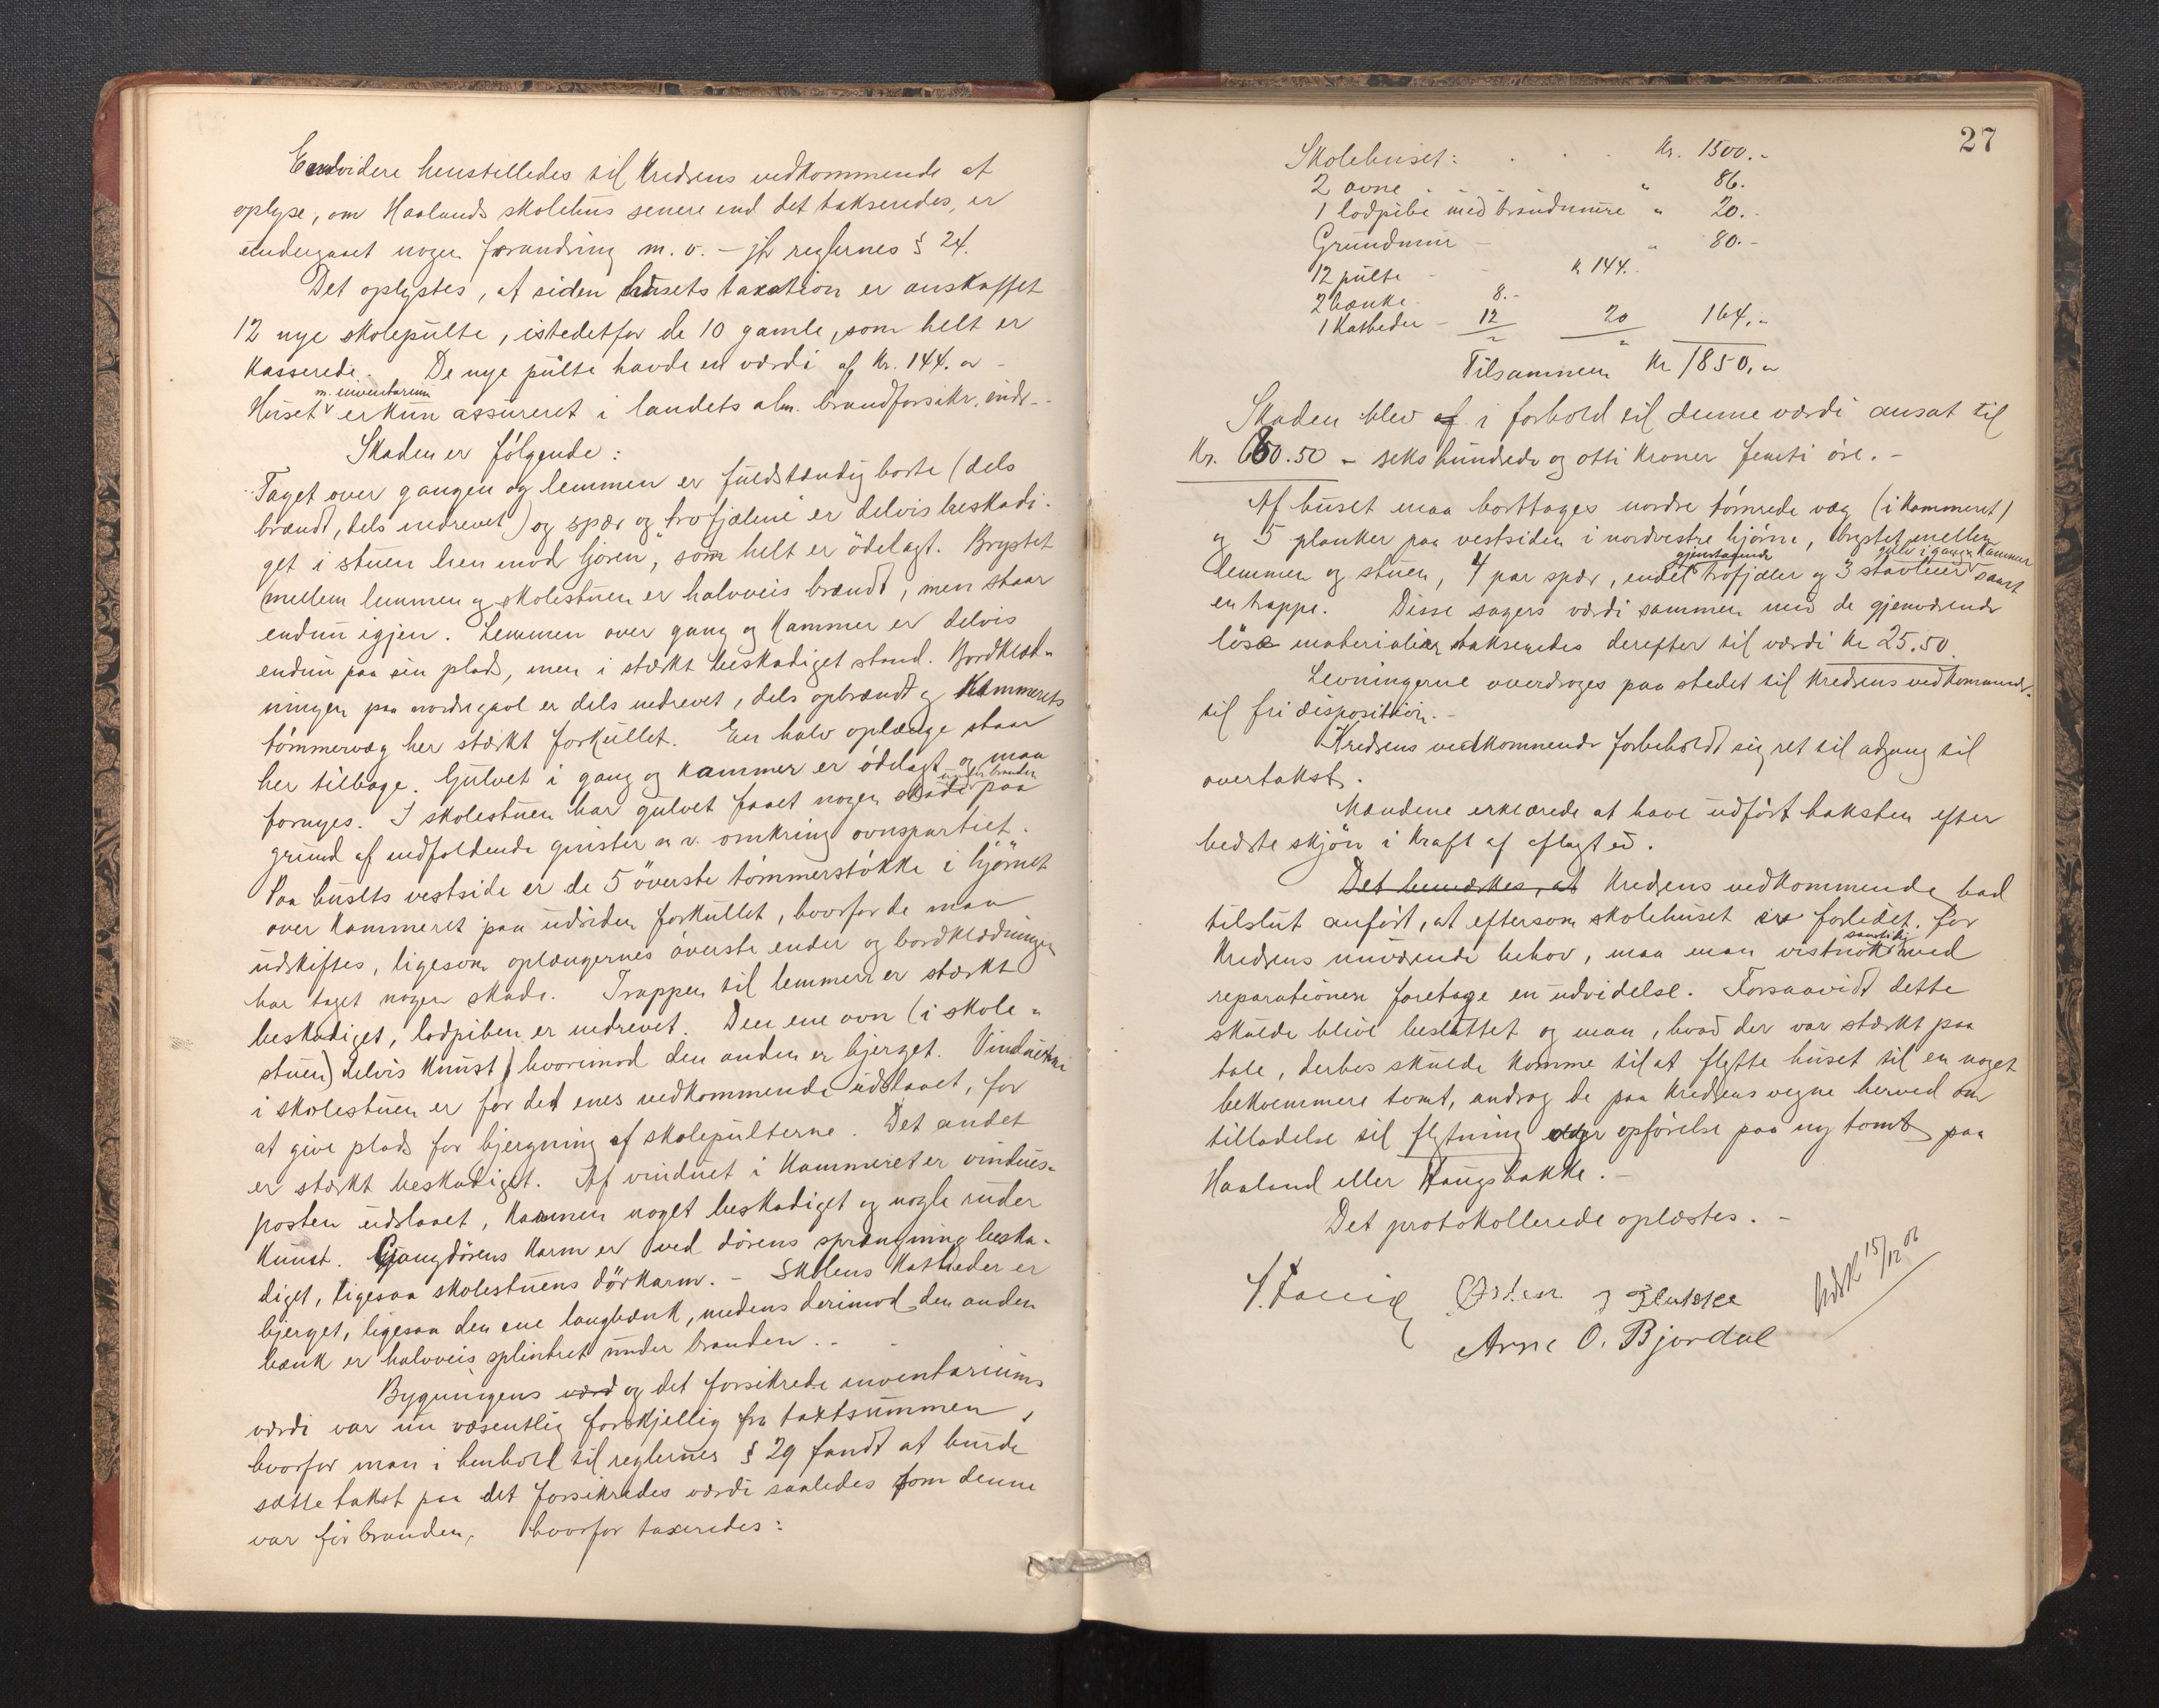 Endvidere henstilledes til kredsens vedkommende at
oplyse, om Haalands skolehus senere end det takseredes, er
undergaaet nogen forandring m. v. – jfr reglernes § 24.
Det oplystes, at siden husets taxation er anskaffet
12 nye skolepulte, istedetfor de 10 gamle, som helt er
kasserede. De nye pulte havde en værdi af Kr. 144.
m. inventarium
Huset er kun assureret i landets alm. brandforsikr. indr.
Skaden er følgende:
Taget over gangen og lemmen er fuldstændig borte (dels
brændt, dels nedrevet) og spær og trofjælene er delvis beskadi-
get i stuen hen mod ljoren, som helt er ödelagt. Brystet
mellem lemmen og skolestuen er halvveis brændt, men staar
endnu igjen. Lemmen over gang og kammer er delvis
endnu paa sin plads, men i stærkt beskadiget stand. Bordklæd-
ningen paa nordre gavl er dels nedrevet, dels opbrændt og kammerets
tömmervæg her stærkt forkullet. En halv oplænge staar
her tilbage. Gulvet i gang og kammer er ödelagt og maa
under branden
fornyes. I skolestuen har gulvet faaet nogen skade paa
grund af nedfaldende gnister m. v. omkring ovnspartiet.
Paa husets vestside er de 5 överste tömmerstökke i hjörnet
over kammeret paa udsiden forkullet, hvorfor de maa
udskiftes, ligesom oplængernes överste ender og bordklædningen
har taget nogen skade. Trappen til lemmen er stærkt
beskadiget, lodpiben er nedrevet. Den ene ovn (i skole-
stuen) delvis knust, hvorimod den anden er bjerget. Vinduerne
i skolestuen er for det enes vedkommende udslaaet, for
at give plads for bjergning af skolepulterne. Det andet
er stærkt beskadiget. Af vinduet i kammeret er vindues-
posten udslaaet, karmen noget beskadiget og nogle ruder
knust. Gangdörens karm er ved dörens sprængning beska-
diget, ligesaa skolestuens dörkarm. – Skolens katheder er
bjerget, ligesaa den ene langbænk, medens derimod den anden
bænk er halvveis splintret under branden. –
Bygningens værd og det forsikrede inventariums
værdi var nu væsentlig forskjellig fra taxtsummen,
hvorfor man i henhold til reglernes § 29 fandt at burde
sætte takst paa det forsikredes værdi saaledes som denne
var för branden, hvorfor taxeredes:
27
Skolehuset: . . . Kr. 1500.-
2 ovne - " 86.
1 lodpibe med brandmure " 20.-
Grundmur - " 80.-
12 pulte - - K 144.-
2 bænke 8.-
1 katheder - 12 20 164.-
Tilsammen Kr 1850.
Skaden blev af i forhold til denne værdi ansat til
Kr. 680.50 – seks hundrede og otti kroner femti öre. –
Af huset maa borttages nordre tömrede væg (i kammeret)
og 5 planker paa vestsiden i nordvestre hjörne, brystet mellem
gjenstaaende gulv i gang & kammer
lemmen og stuen, 4 par spær, endel trofjæler og 3 stavliner samt
en trappe. Disse sagers værdi sammen med de gjenværende
löse materialier taksenedes derefter til værdi Kr 25.50.
Levningerne overdroges paa stedet til kredsens vedkommende
til fri disposition. –
Kredsens vedkommende forbeholdt sig ret til adgang til
overtakst.
Mændene erklærede at have udfört taksten efter
bedste skjön i kraft af aflagt ed.
Det bemærkes, at kredsens vedkommende bad
tilslut anfört, at eftersom skolehuset er forlidet for
samtidig
kredsens nuværende behov, maa man vistnok med
reparationen foretage en udvidelse. Forsaavidt dette
skulde blive besluttet og man, hvad der var stærkt paa
tale, derhos skulde komme til at flytte huset til en noget
bekvemmere tomt, androg de paa kredsens vegne herved om
tilladelse til flytning eller opförelse paa ny tomt paa
Haaland eller Haugsbakke. –
Det protokollerede oplæstes. –
Arne O. Bjordal
15/12 06